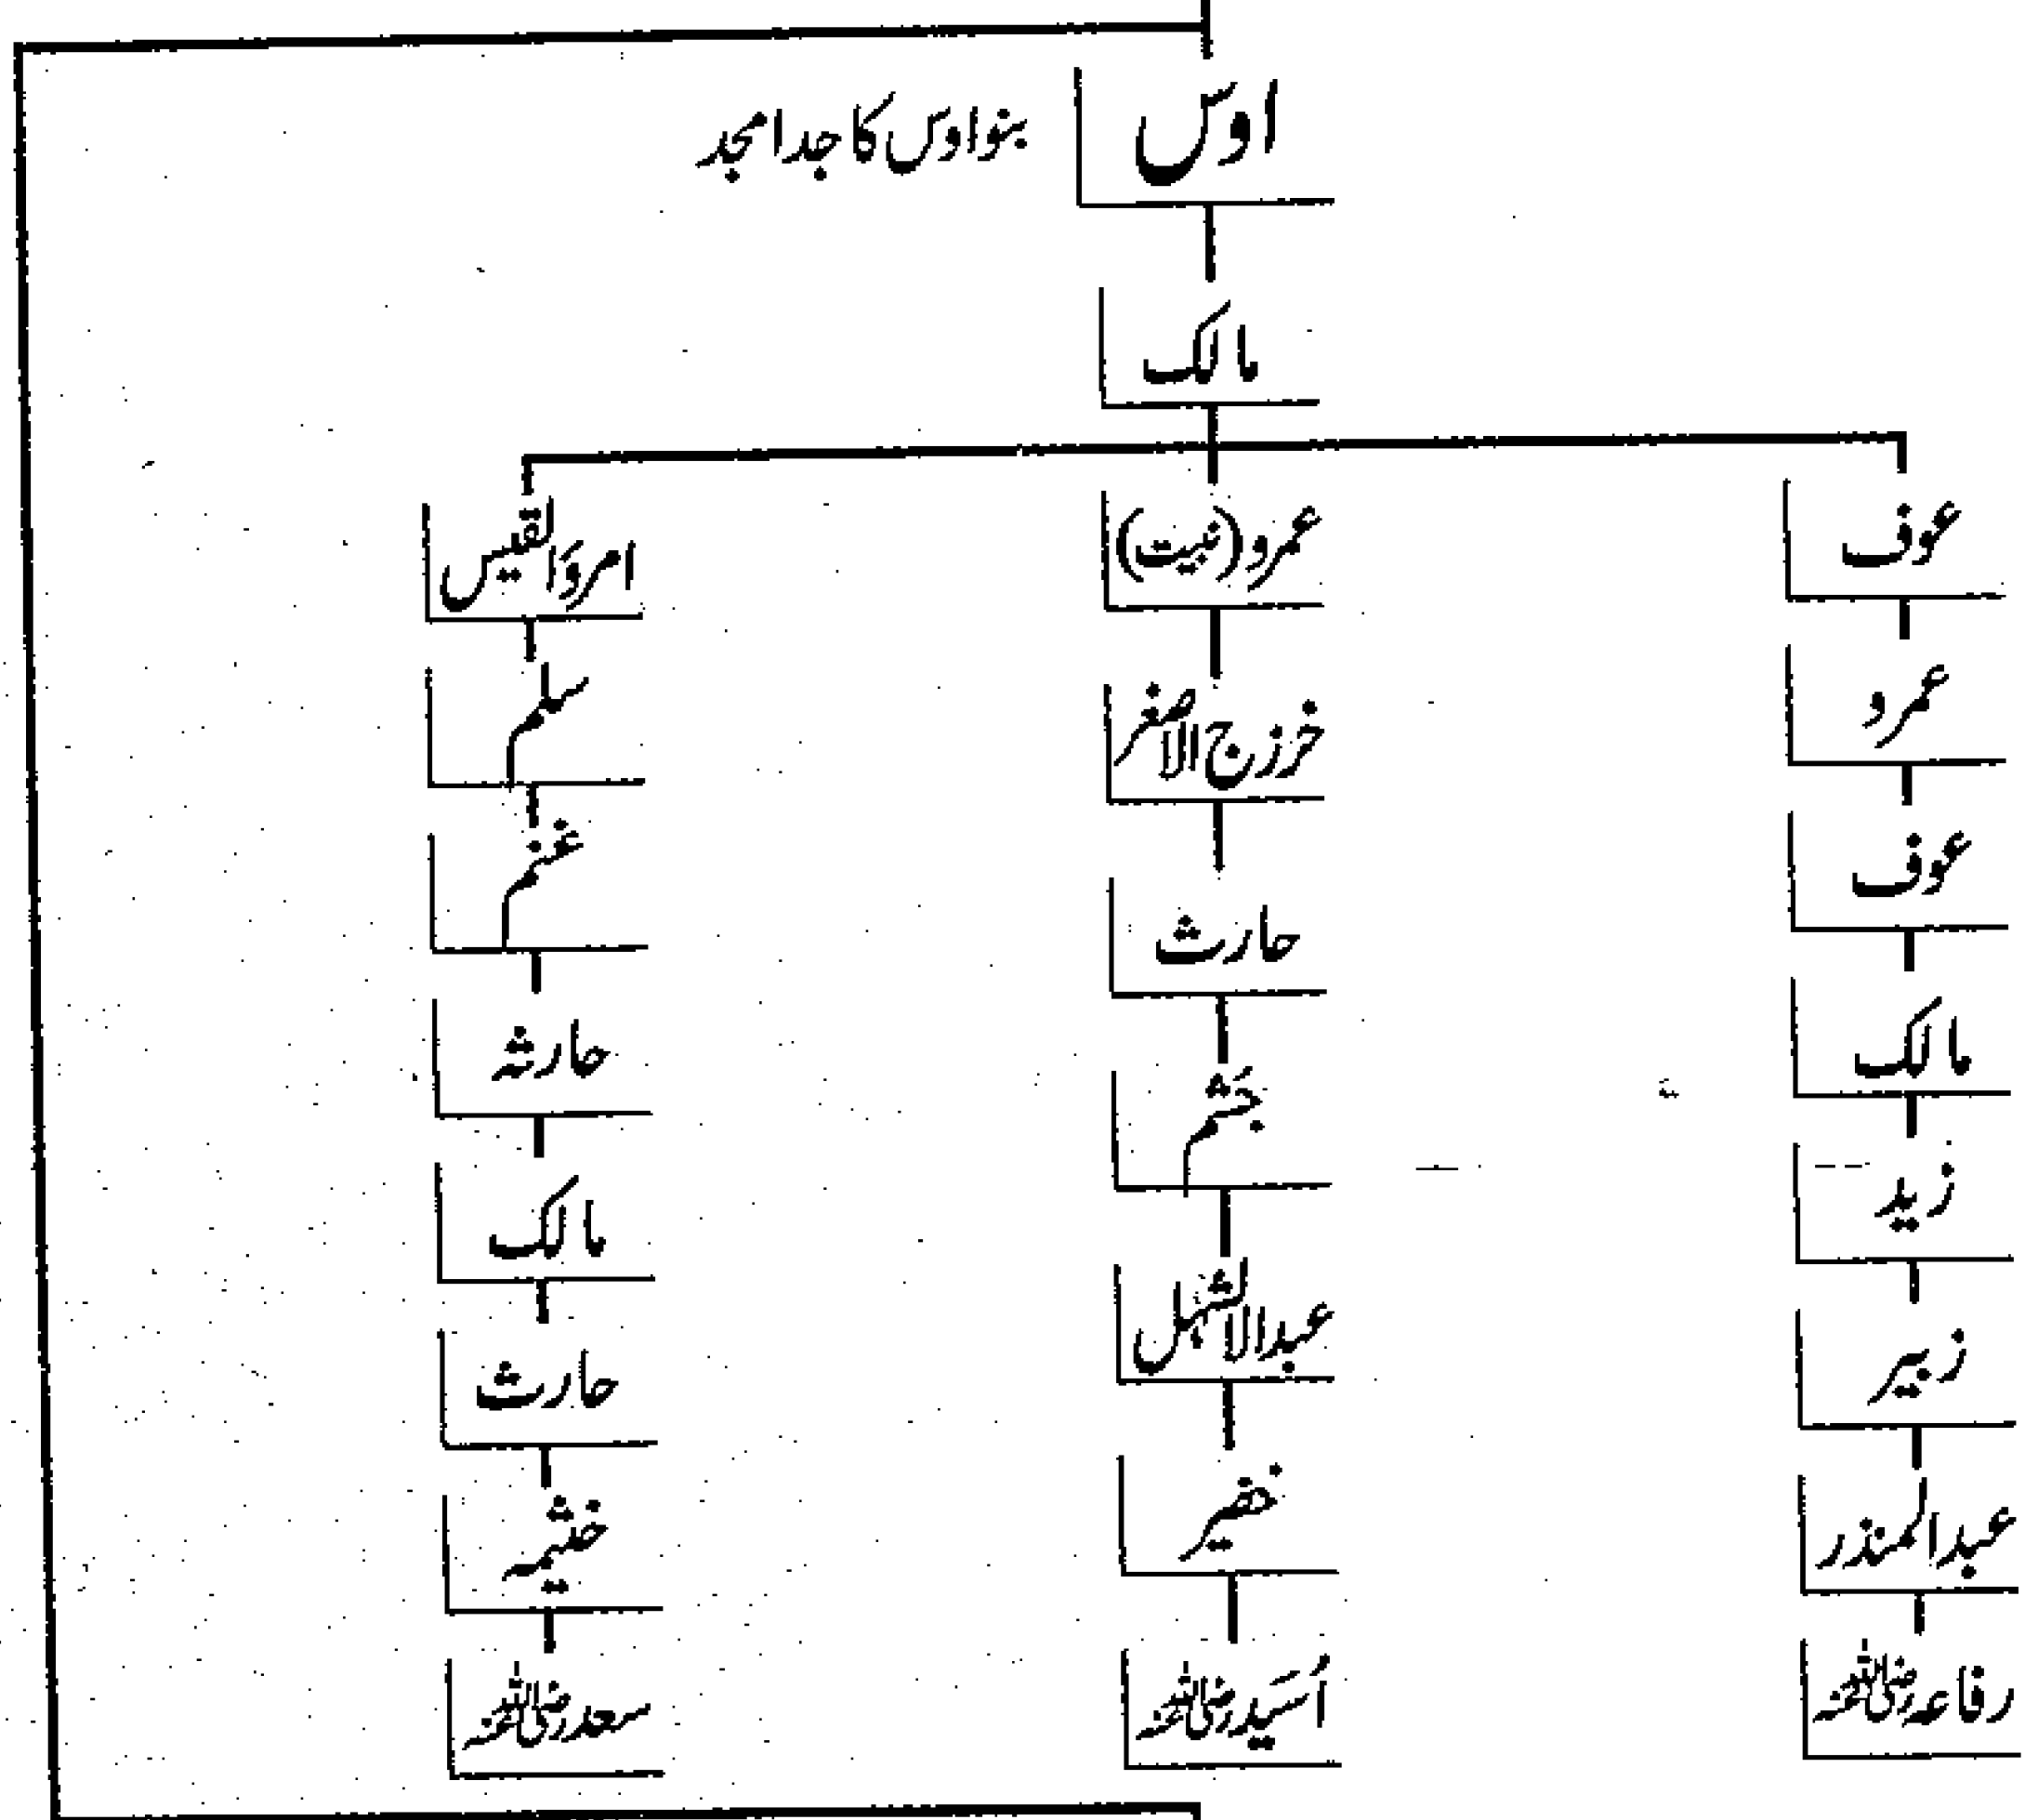 اوس
بنو اوس کا جد امجد
مالک
عوف
عمرو
عوف
مالک
زید
زبیر
عبدالمنذر
رفاعہ رضی اللہ عنہ
عمرو (نبیت)
خزرج الاصغر
حارث
جَشم
عبدالاشہل
خضیر
اُسَید رضی اللہ عنہ
امروَالقیس
سلم
غنم
حارثہ
مالک
حارث
خثیمہ
سعد رضی اللہ عنہ